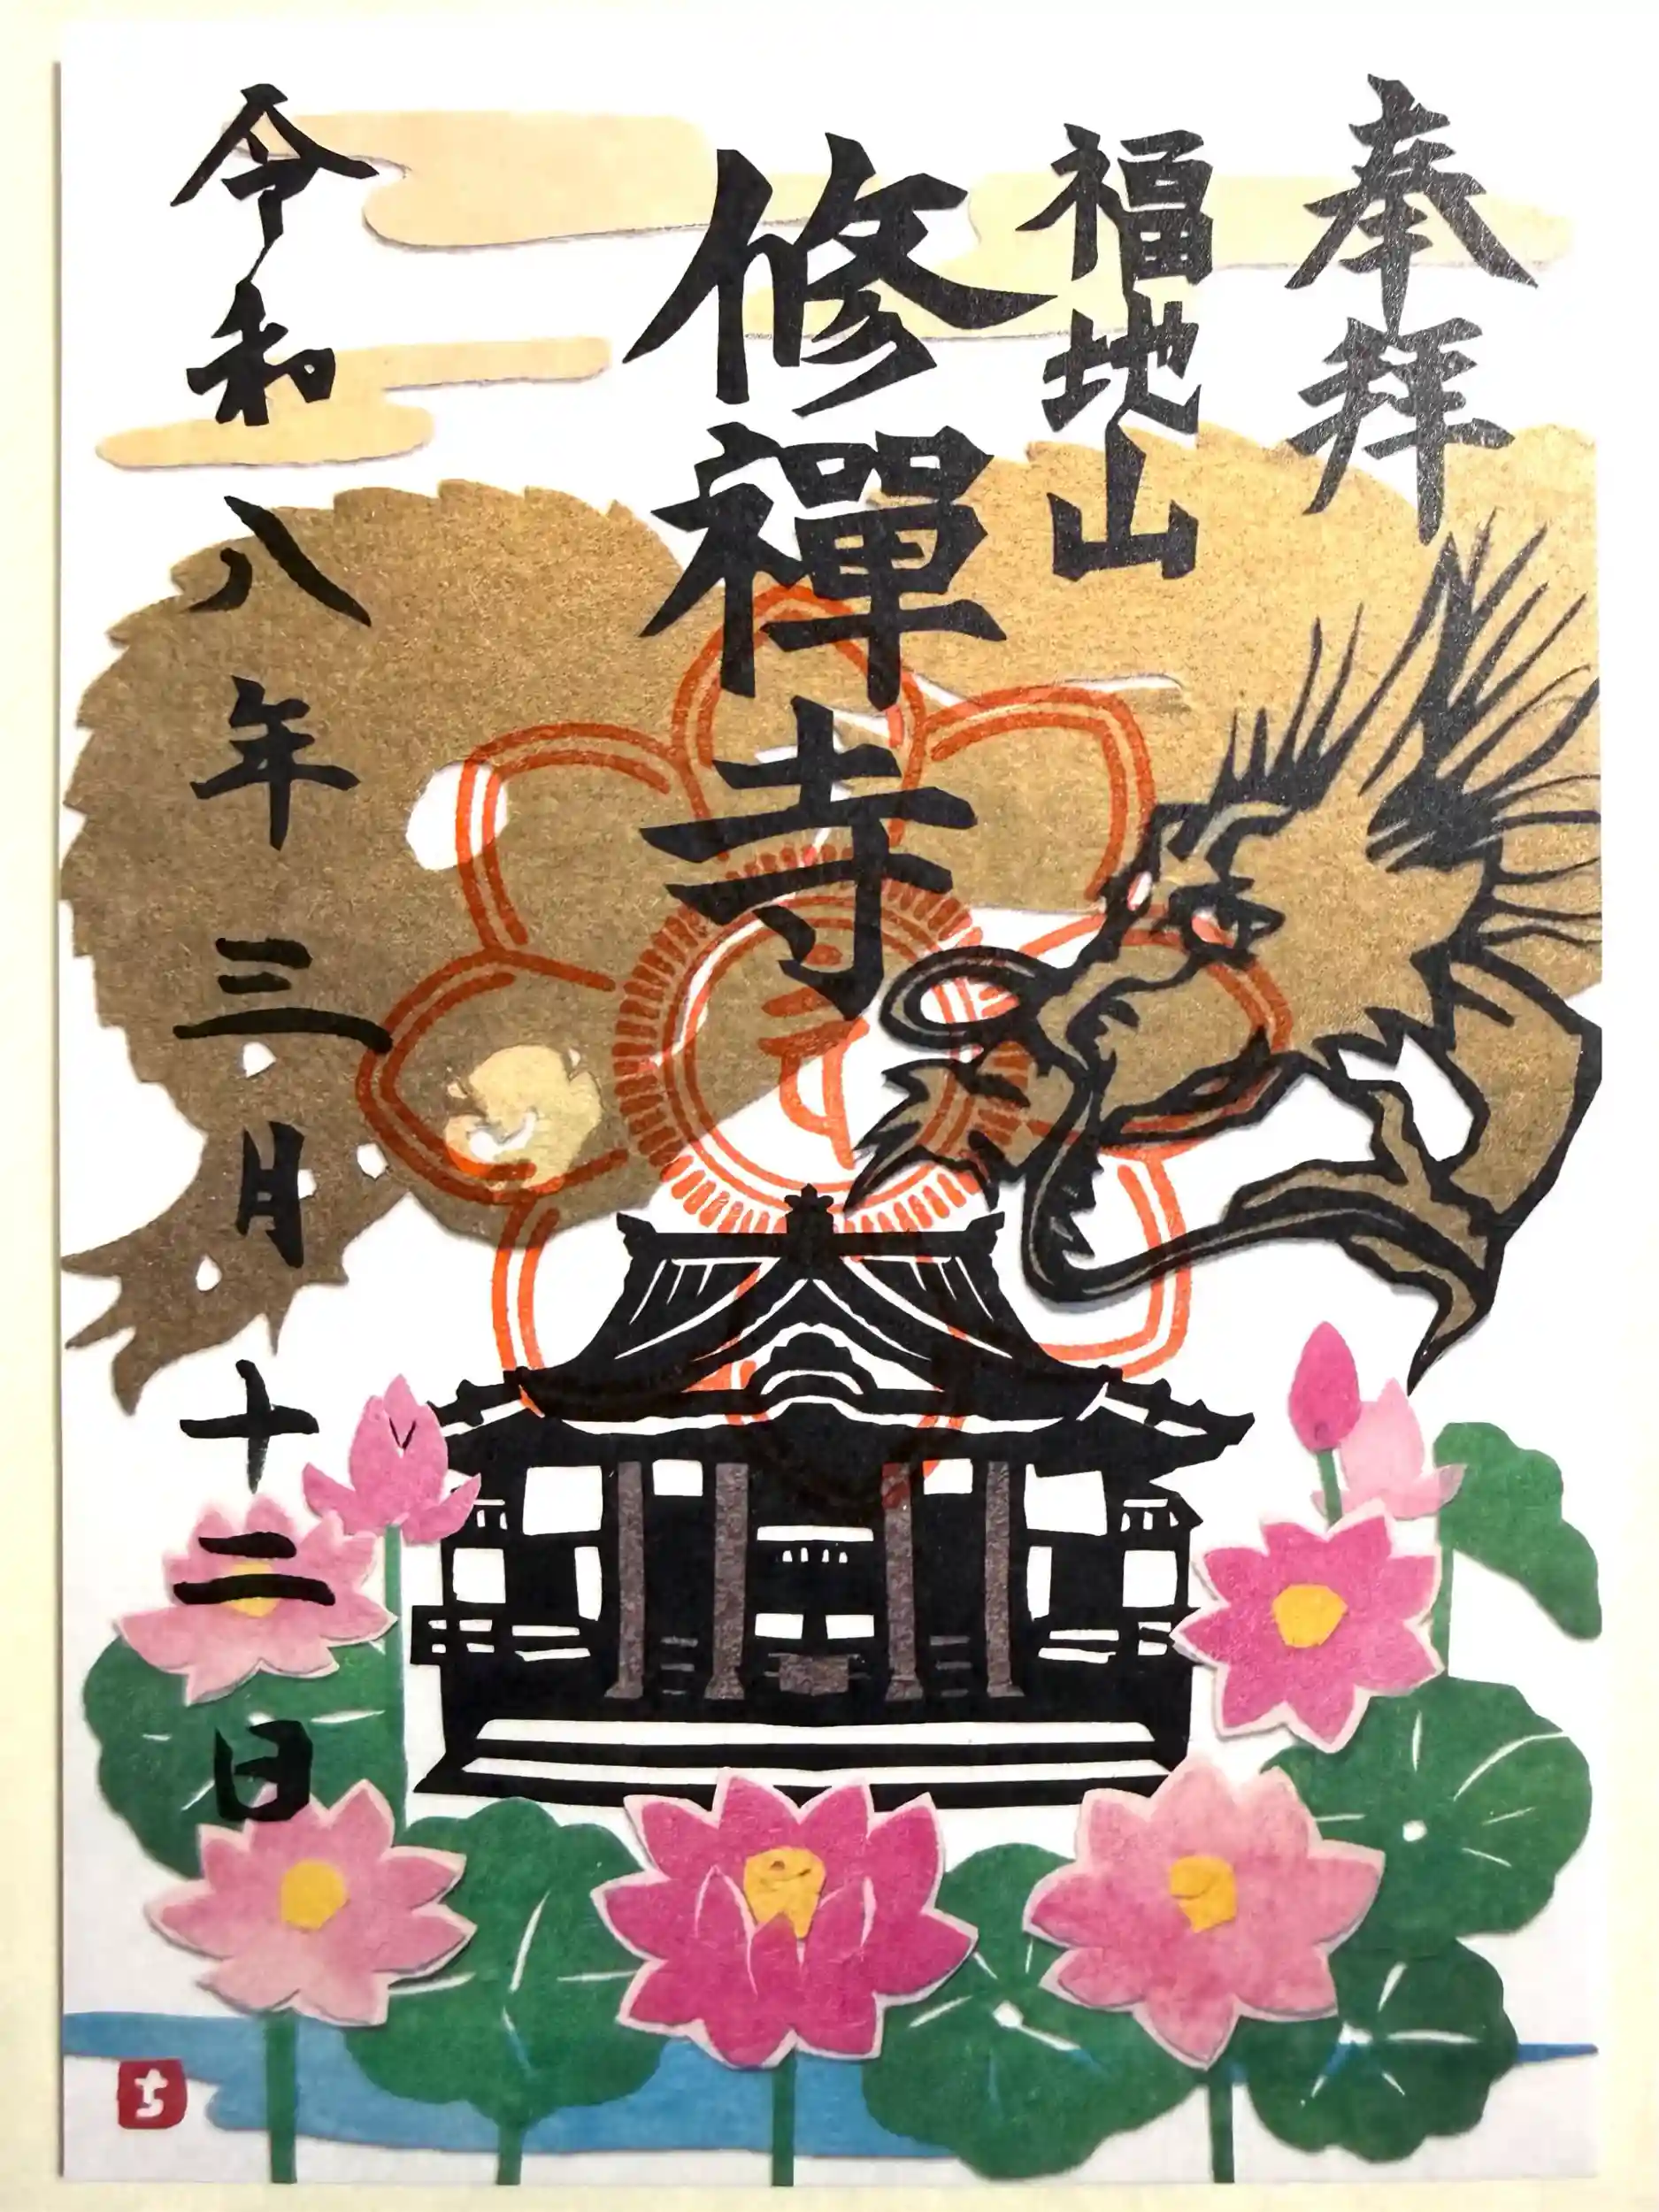 奉拝
福地山
修禪寺
令和八年三月十二日
ち